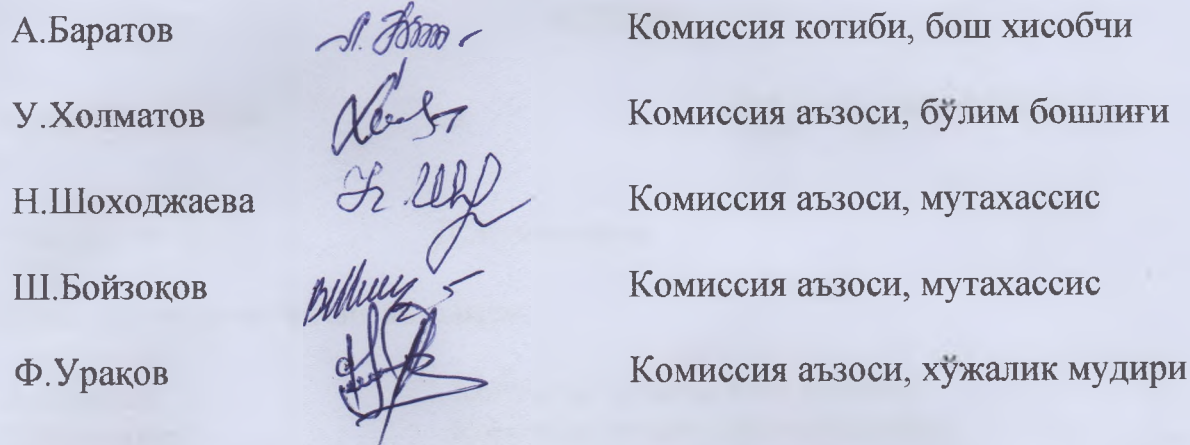 А.Баратов Комиссия котиби, бош хисобчи
У.Холматов Комиссия аъзоси, бўлим бошлиғи
Н.Шоходжаева Комиссия аъзоси, мутахассис
Ш.Бойзоқов Комиссия аъзоси, мутахассис
Ф.Урақов Комиссия аъзоси, хўжалик мудири